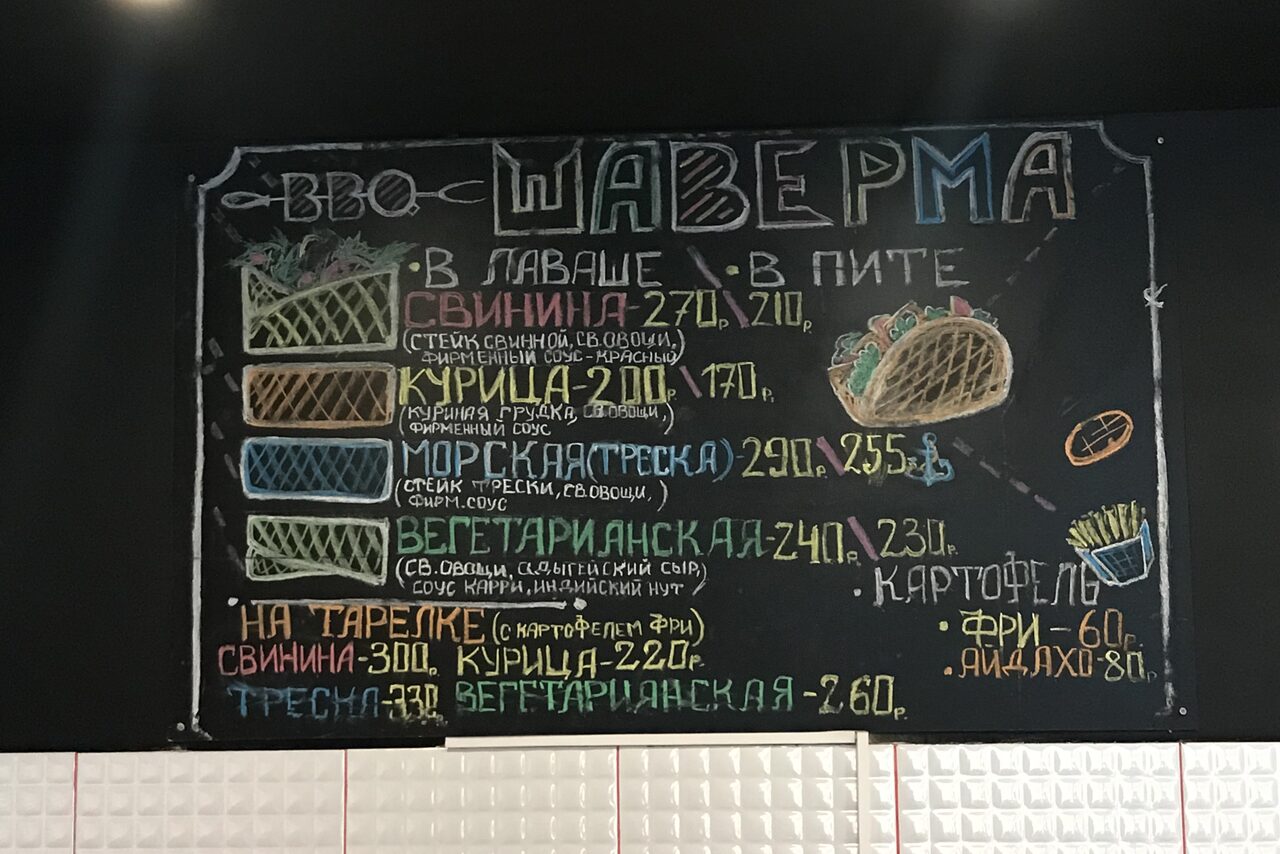 BBQ ШАВЕРМА
•В ЛАВАШЕ \ •В ПИТЕ
СВИНИНА-270р\210р.
(СТЕЙК СВИННОЙ, СВ.ОВОЩИ,
ФИРМЕННЫЙ СОУС-КРАСНЫЙ)
КУРИЦА-200р.\170р.
(КУРИНАЯ ГРУДКА, СВ.ОВОЩИ,)
ФИРМЕННЫЙ СОУС
МОРСКАЯ(ТРЕСКА)-290р.\255р.
(СТЕЙК ТРЕСКИ, СВ.ОВОЩИ,)
ФИРМ.СОУС
ВЕГЕТАРИАНСКАЯ-240р.\230р.
(СВ.ОВОЩИ, АДЫГЕЙСКИЙ СЫР,
СОУС КАРРИ, ИНДИЙСКИЙ НУТ)
НА ТАРЕЛКЕ (С КАРТОФЕЛЕМ ФРИ)
СВИНИНА-300р. КУРИЦА-220р.
ТРЕСКА-330р. ВЕГЕТАРИЯНСКАЯ-260р.
•КАРТОФЕЛЬ
•ФРИ-60р.
•АЙДАХО-80р.